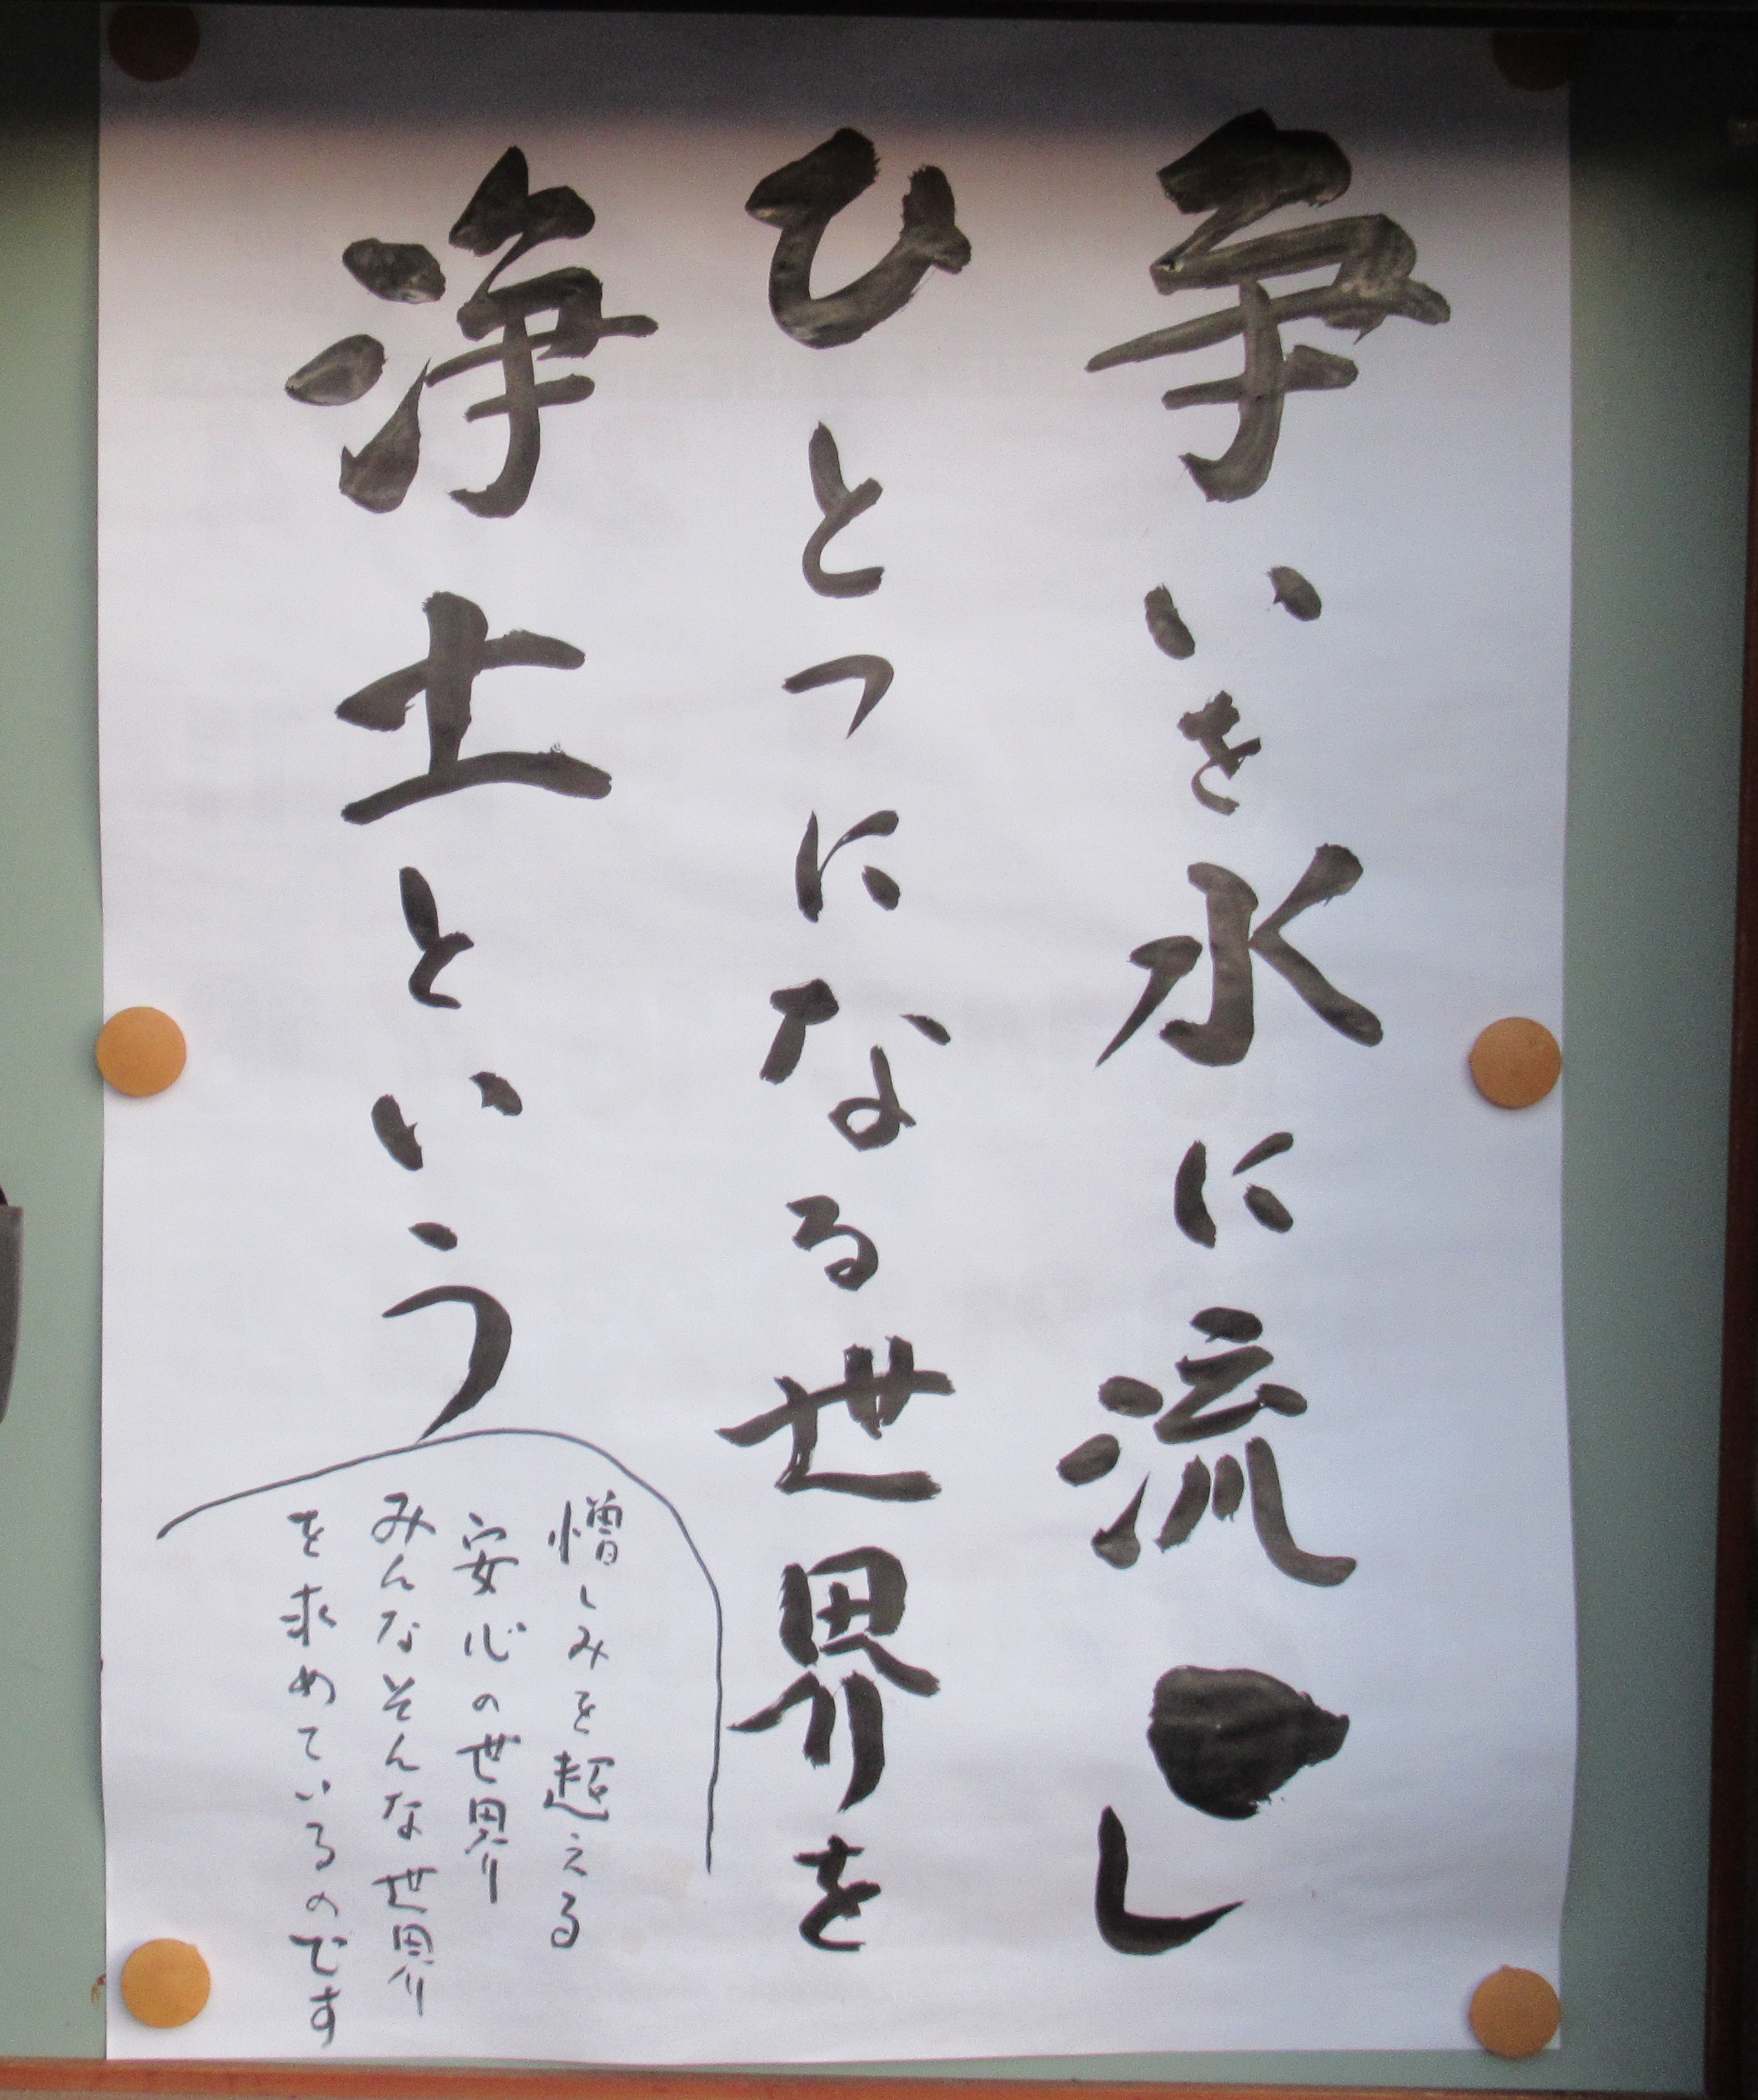 争いを水に流し
ひとつになる世界を
浄土という
憎しみを超える
安心の世界
みんなそんな世界
を求めているのです